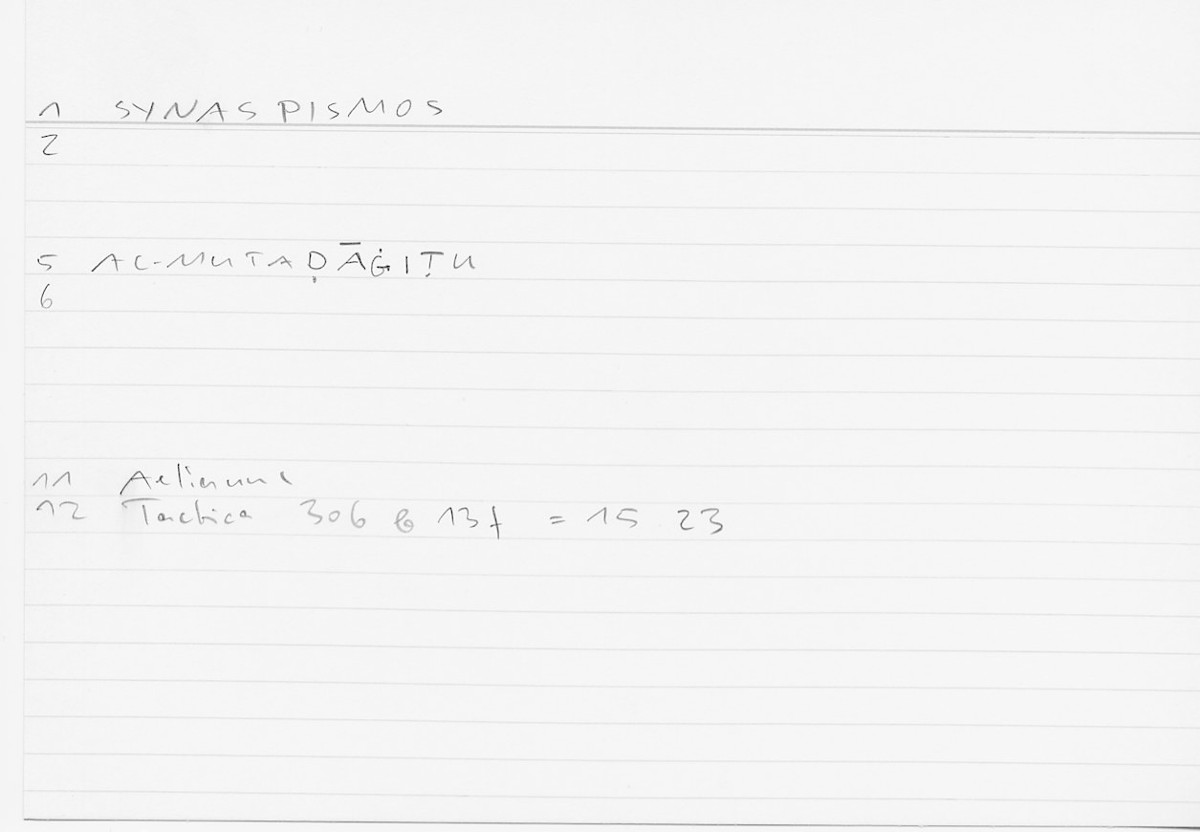 1 SYNASPISMOS
2
5 AL-MUTAḌĀĠIṬU
6
11 Aelianus
12 Tactica 306 b 13f = 15 23